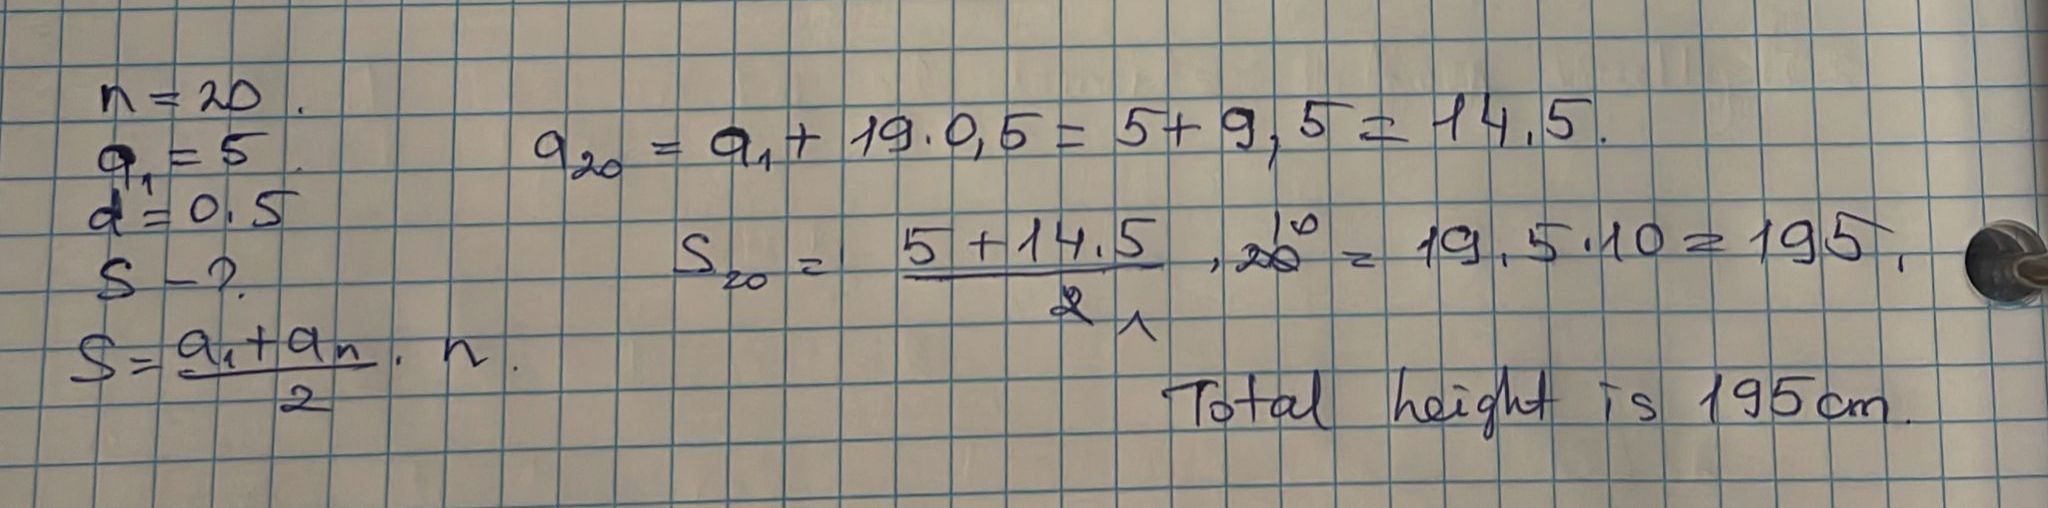 n = 20 .
a₁ = 5 .
d = 0.5
S – ?.
S = (a₁ + aₙ)/2 · n .
a₂₀ = a₁ + 19 · 0,5 = 5 + 9,5 = 14.5.
S₂₀ = (5 + 14.5)/2 1 · 20 10 = 19.5 · 10 = 195.
Total height is 195 cm.